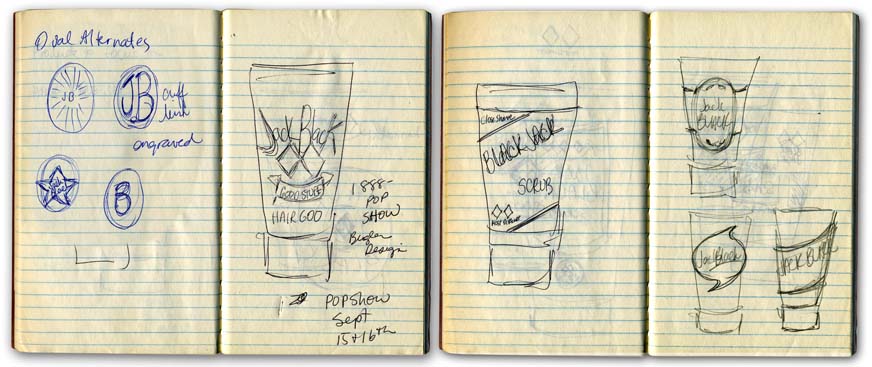 Oval Alternates
JB
JB
cuff
link
engraved
B
Jack Black
GOOD STUFF
HAIR GOO
1888-
POP
SHOW
Design
POPSHOW
Sept
15+16th
Close Shave
BLACK JACK
SCRUB
Jack
BLACK
Jack Black
JACK BLACK